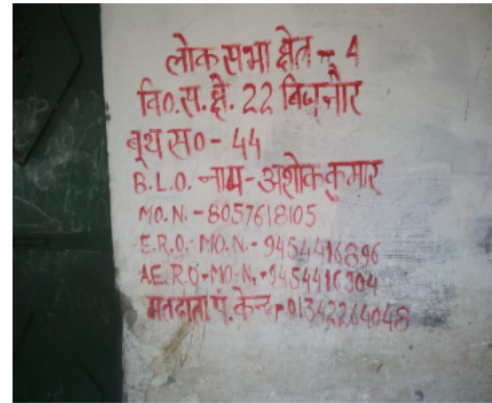 लोक सभा क्षेत्र - 4
वि०.स.क्षे. 22 बिजनौर
बूथ स० - 44
B.L.O. नाम - अशोक कुमार
MO.N. - 8057618105
E.R.O.-MO.N.- 9454416896
A.E.R.O-MO-N.-9454416904
मतदाता पं. केन्द्र-01342264048